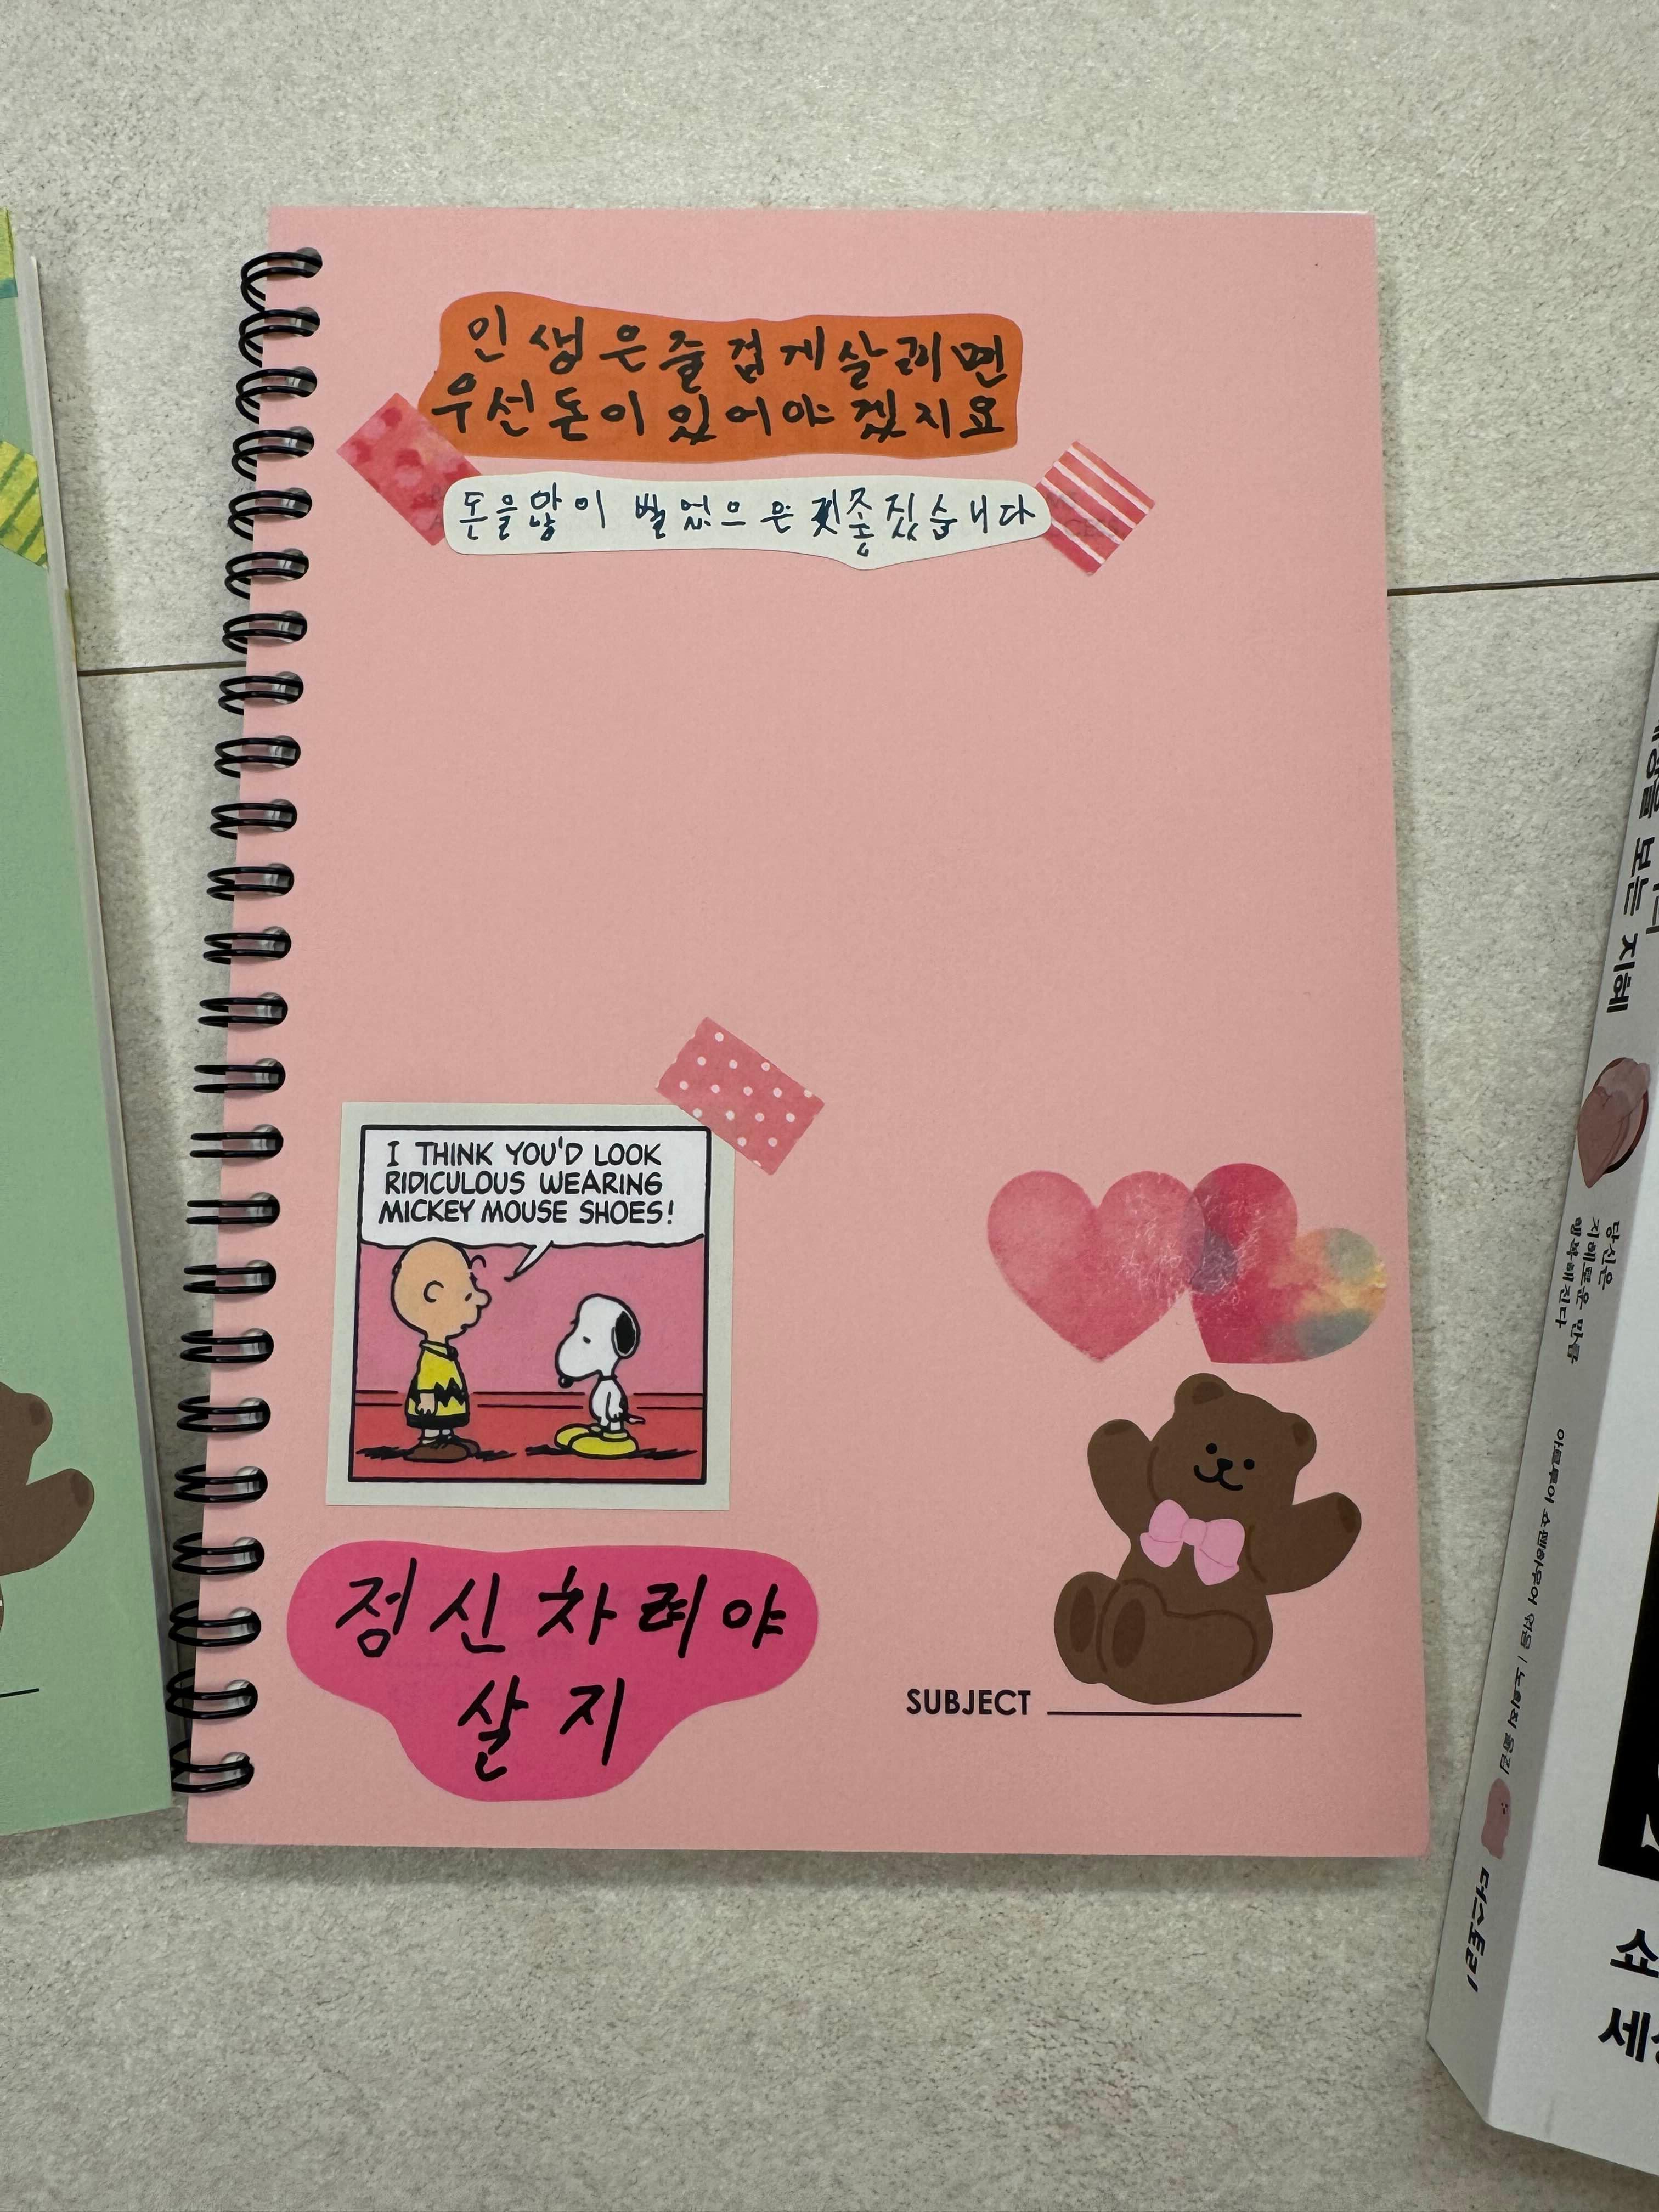 인생은즐겁게살려면
우선돈이있어야겠지요
돈을많이벌었으
좋겠습니다
I THINK YOU'D LOOK
RIDICULOUS WEARING
MICKEY MOUSE SHOES!
정신차려야
살지
SUBJECT
보는 지혜
당신은
지혜로운 만큼
행복해진다
아르투어 쇼펜하우어 엮음 / 노희직 옮김
더스토리
쇼